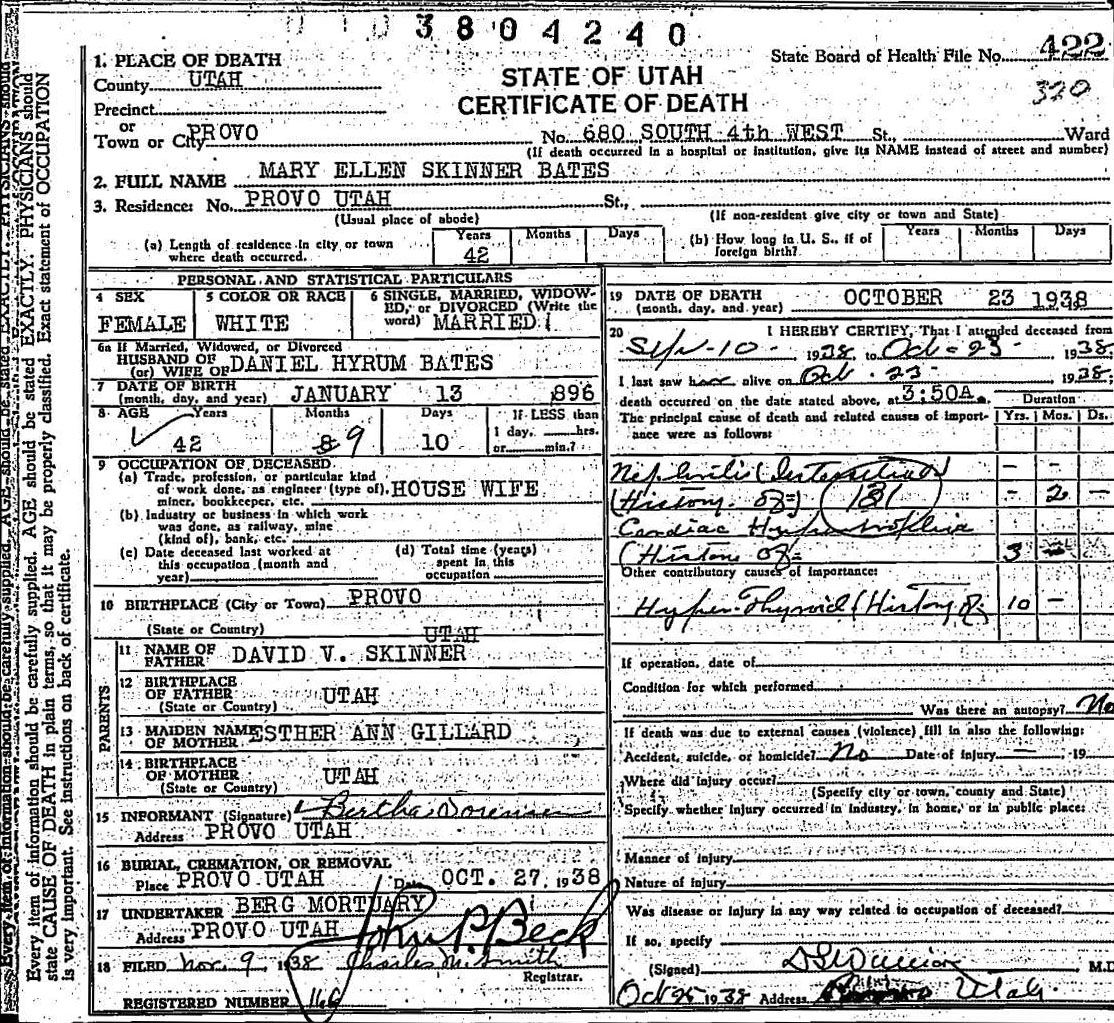 3804240
State Board of Health File No. 422
320
1. PLACE OF DEATH
County UTAH
STATE OF UTAH
CERTIFICATE OF DEATH
Precinct
or
Town or City PROVO No. 680 SOUTH 4th WEST St., Ward
(If death occurred in a hospital or institution, give its NAME instead of street and number)
2. FULL NAME MARY ELLEN SKINNER BATES
3. Residence: No. PROVO UTAH St.,
(Usual place of abode) (If non-resident give city or town and State)
(a) Length of residence in city or town where death occurred. Years 42 Months Days
(b) How long in U. S., if of foreign birth? Years Months Days
PERSONAL AND STATISTICAL PARTICULARS
4 SEX FEMALE
5 COLOR OR RACE WHITE
6 SINGLE, MARRIED, WIDOWED, or DIVORCED (Write the word) MARRIED
6a If Married, Widowed, or Divorced
HUSBAND OF
(or) WIFE OF DANIEL HYRUM BATES
7 DATE OF BIRTH
(month, day, and year) JANUARY 13 896
8 AGE Years Months Days If LESS than
1 day, hrs.
42 9 10 or min.?
9 OCCUPATION OF DECEASED
(a) Trade, profession, or particular kind
of work done, as engineer (type of), HOUSE WIFE
miner, bookkeeper, etc.
(b) Industry or business in which work
was done, as railway, mine
(kind of), bank, etc.
(c) Date deceased last worked at
this occupation (month and
year)
(d) Total time (years)
spent in this
occupation
10 BIRTHPLACE (City or Town) PROVO
(State or Country) UTAH
PARENTS
11 NAME OF
FATHER DAVID V. SKINNER
12 BIRTHPLACE
OF FATHER UTAH
(State or Country)
13 MAIDEN NAME
OF MOTHER ESTHER ANN GILLARD
14 BIRTHPLACE
OF MOTHER UTAH
(State or Country)
15 INFORMANT (Signature) Bertha
Address PROVO UTAH
16 BURIAL, CREMATION, OR REMOVAL
Place PROVO UTAH Date OCT. 27, 1938
17 UNDERTAKER BERG MORTUARY
Address PROVO UTAH
John P. Beck
18 FILED Nov. 9, 1938 Charles M. Smith
Registrar.
REGISTERED NUMBER 146
19 DATE OF DEATH
(month, day, and year) OCTOBER 23 1938
20 I HEREBY CERTIFY, That I attended deceased from
Sept-10- 1938 to Oct-23- 1938
I last saw her alive on Oct. 23- 1938
death occurred on the date stated above, at 3:50A.
Duration
The principal cause of death and related causes of importance were as follows: Yrs. Mos. Ds.
Nephritis (Interstitial) - -
(History of) 131 - 2 -
Cardiac Hypertrophia
(History of- 3 -
Other contributory causes of importance:
Hyper-Thyroid (History of 10 -
If operation, date of
Condition for which performed
Was there an autopsy? No
If death was due to external causes (violence) fill in also the following:
Accident, suicide, or homicide? No Date of injury - 19
Where did injury occur?
(Specify city or town, county and State)
Specify whether injury occurred in industry, in home, or in public place:
Manner of injury
Nature of injury
Was disease or injury in any way related to occupation of deceased?
If so, specify
(Signed) M.D
Oct 25 1938 Address Utah.
Every item of information should be carefully supplied. AGE should be stated EXACTLY. PHYSICIANS should
state CAUSE OF DEATH in plain terms, so that it may be properly classified. Exact statement of OCCUPATION
is very important. See instructions on back of certificate.